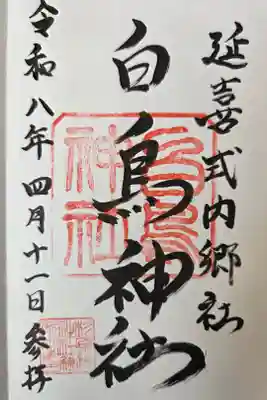 延喜式内郷社
白鳥神社
令和八年四月十一日参拝